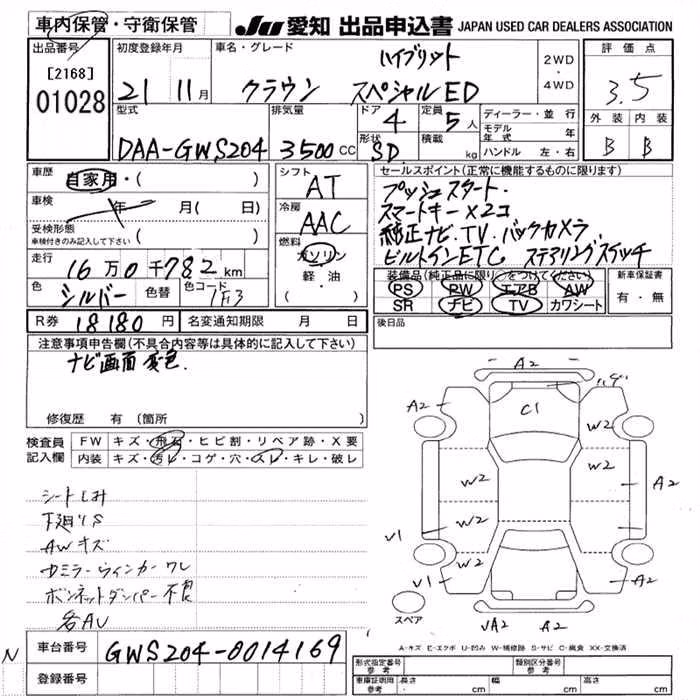 車内保管・守衛保管
JU 愛知 出品申込書 JAPAN USED CAR DEALERS ASSOCIATION
出品番号
[2168]
01028
初度登録年月
21 11月
車名・グレード
ハイブリット
クラウン スペシャルED
2WD
・
4WD
評価点
3.5
外装 内装
B B
型式
DAA-GWS204
排気量
3500cc
ドア 4
形状 SD
定員 5人
積載 kg
ディーラー・並行
モデル年式 年
ハンドル 左・右
車歴 自家用・( )
車検 年 月(日)
受検形態
車検付きのみ記入して下さい ( )
走行 16万0千782km
色 シルバー 色替 色コード 1F3
R券 18180円 名変通知期限 月 日
シフト AT
冷房 AAC
燃料 ガソリン
軽・油
セールスポイント(正常に機能するものに限ります)
プッシュスタート.
スマートキー×2コ
純正ナビ.TV.バックカメラ
ビルトインETC ステアリングスイッチ
装備品(純正品に限り○をつけてください)
PS PW エアB AW
SR ナビ TV カワシート
新車保証書
有・無
後日品
注意事項申告欄(不具合内容等は具体的に記入して下さい)
ナビ画面変色.
修復歴 有(箇所 )
検査員記入欄
FW キズ・飛石・ヒビ割・リペア跡・X要
内装 キズ・汚レ・コゲ・穴・スレ・キレ・破レ
シートしみ
下廻りS
AWキズ
ミラーウィンカーワレ
ボンネットダンパー不良
各AU
A2
C1
A2
W2
W2 W2
A2
W2 W2
V1
V1
W2
A2
A2
スペア
A-キズ E-エクボ U-凹み W-補修跡 S-サビ C-腐食 XX-交換済
N
車台番号 GWS204-0014169
登録番号
形式指定番号 類別区分番号
車庫証明用参考 長さ cm 幅 cm 高さ cm